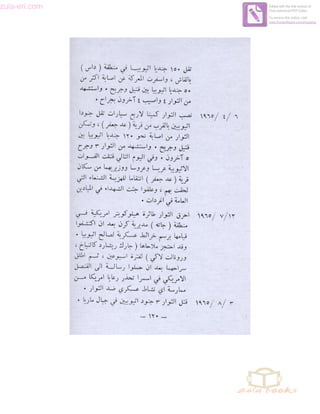 zula-eri.com
Edited with the trial version of
Foxit Advanced PDF Editor
To remove this notice, visit:
www.foxitsoftware.com/shopping
تقل ١٥٠ جنديا اثيوبيا في منطقة ( داس )
بالقاش ، واسفرت المعركة عن اصابة اكثر من
٥٠ جنديا اثيوبيا بين قتيل وجريح ٠ واستشهد
من الثوار ٤ واصيب ٤ آخرون بجراح ٠
٦ / ٤ / ١٩٦٥ نصب الثوار كمينا لاربع سيارات تقل جنودا
اثيوبيين بالقرب من قرية ( عد جعفر ) ، وتمكن
الثوار من اصابة نحو ١٢٠ جنديا اثيوبيا بين
قتيل وجريح ٠ واستشهد من الثوار ٣ وجرح
٥ آخرون ٠ وفي اليوم التالي قتلت القوات
الاثيوبية عريسا وعروسا ووزيريهما من سكان
قرية ( عد جعفر ) انتقاما للهزيمة الشنعاء التي
لحقت بهم ، وعلقوا جثث الشهداء في الميادين
العامة في اغردات ٠
١٩٦٥/٧/١٢ احرق الثوار طائرة هيلوكوبتر امريكية في
منطقة ( جاته ) مديرية كرن بعد ان اكتشفوا
قيامها برسم خرائط عسكرية لصالح اثيوبيا ٠
وقد احتجز ملاحاها ( جارك ريتشارد كانباخ ،
ورونالت لاكي ) لفترة اسبوعين ، ثم اطلق
سراحهما بعد ان حملوا رسالة الى القنصل
الامريكي في اسمرا تحذر رعايا امريكا من
ممارسة اي نشاط عسكري ضد الثوار ٠
٣ / ٨ / ١٩٦٥ قتل الثوار ٣ جنود اثيوبيين في جبال ماريا ٠
— ١٢٠ —
zula books